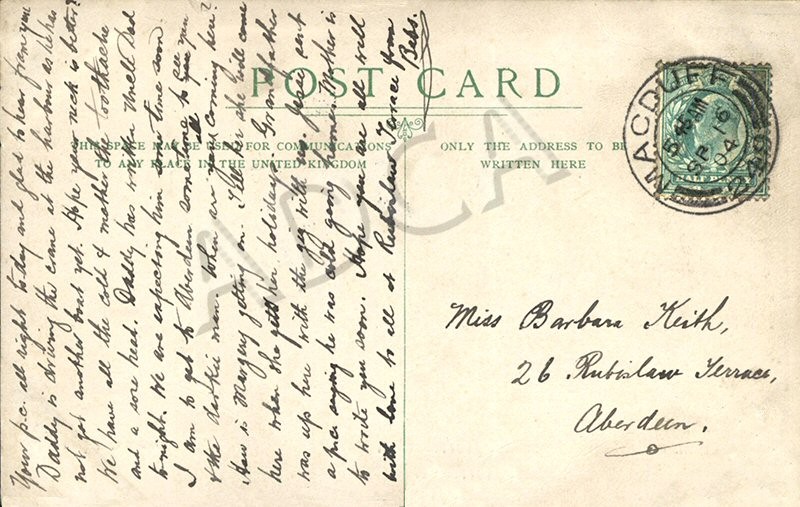 Your p.c. all right today and glad to hear from you
Daddy is driving the crane at the harbour as he has
not got another boat yet. Hope your neck is better?
We have all the cold & mother the toothache
and a sore heat. Daddy has written Uncle Dad
tonight. We are expecting him some time soon.
I am to get to Aberdeen some time to see you
& the darkie man. When are you all coming here?
How is Margery getting on. Tell her she will come
here when she gets her holidays. Grandfather
was up here with the gig with Jeannie sent
a p.c. saying he was cold going home. Mother is
to write you soon. Hope you are all well
with love to all at Rubislaw Terrace from
Bebs.
POST CARD
THIS SPACE MAY BE USED FOR COMMUNICATIONS
TO ANY PLACE IN THE UNITED KINGDOM
ONLY THE ADDRESS TO BE
WRITTEN HERE
MACDUFF
SP 16
04
242
Miss Barbara Keith,
26 Rubislaw Terrace,
Aberdeen.
ADCA